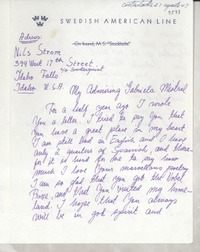 contestada 21 agosto 47
SWEDISH AMERICAN LINE
On board, M.S. "Stockholm"
Adress
Nils Strom
344 West 17th Street
Idaho Falls
Idaho U.S.A.
My Admiring Gabriela Mistral
For a half year ago I wrote
You a letter. I tried to say You that
You have a great place in my heart
I am still bad in English, and I have
only 2 quarters of Spanish, and there-
for it is hard for me to say how
much I love Your marvellous poetry
I am so glad that you got the Nobel
Prize, and that You visited my home-
land. I hope that You always
will be in good spirit and